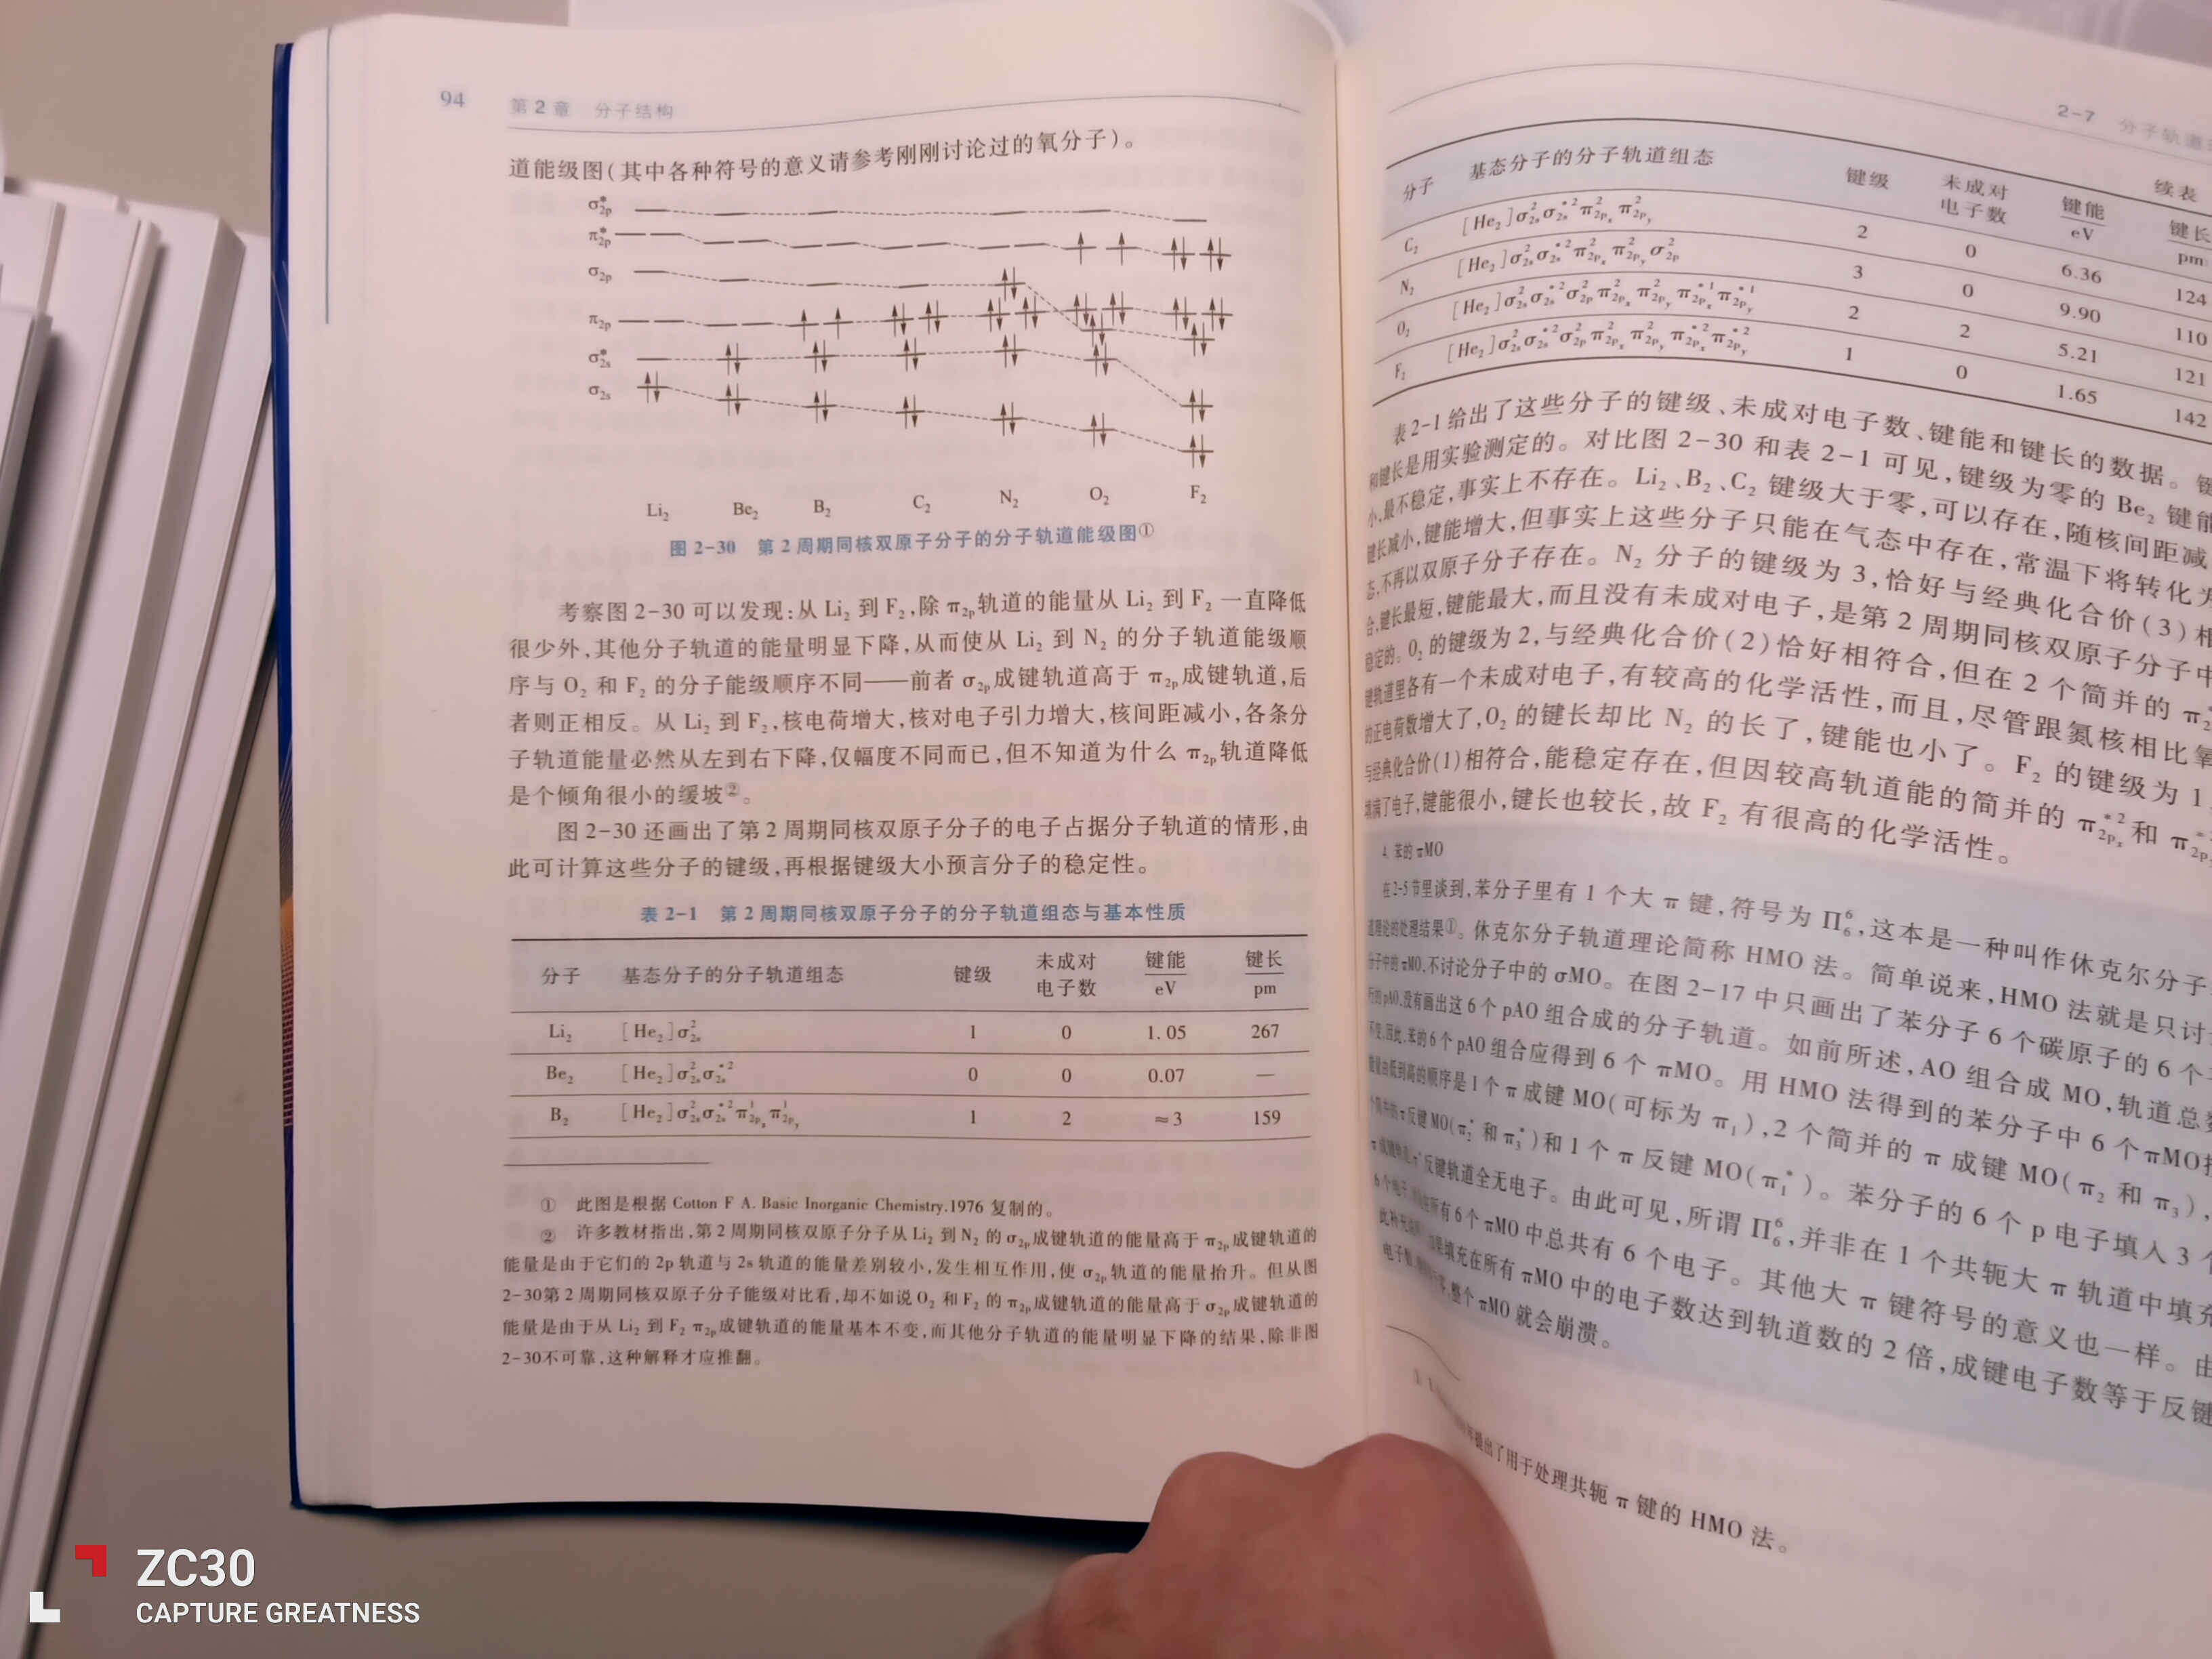 94
第2章 分子结构
道能级图(其中各种符号的意义请参考刚刚讨论过的氧分子)。
σ*2p
π*2p
σ2p
π2p
σ*2s
σ2s
Li2 Be2 B2 C2 N2 O2 F2
图 2-30 第 2 周期同核双原子分子的分子轨道能级图①
考察图 2-30 可以发现:从 Li2 到 F2,除 π2p轨道的能量从 Li2 到 F2 一直降低
很少外,其他分子轨道的能量明显下降,从而使从 Li2 到 N2 的分子轨道能级顺
序与 O2 和 F2 的分子能级顺序不同——前者 σ2p成键轨道高于 π2p成键轨道,后
者则正相反。从 Li2 到 F2,核电荷增大,核对电子引力增大,核间距减小,各条分
子轨道能量必然从左到右下降,仅幅度不同而已,但不知道为什么 π2p轨道降低
是个倾角很小的缓坡②。
图 2-30 还画出了第 2 周期同核双原子分子的电子占据分子轨道的情形,由
此可计算这些分子的键级,再根据键级大小预言分子的稳定性。
表 2-1 第 2 周期同核双原子分子的分子轨道组态与基本性质
分子 基态分子的分子轨道组态 键级 未成对电子数 键能/eV 键长/pm
Li2 [He2]σ2s² 1 0 1.05 267
Be2 [He2]σ2s²σ2s*² 0 0 0.07 —
B2 [He2]σ2s²σ2s*²π2px¹π2py¹ 1 2 ≈3 159
① 此图是根据 Cotton F A. Basic Inorganic Chemistry.1976 复制的。
② 许多教材指出,第 2 周期同核双原子分子从 Li2 到 N2 的 σ2p成键轨道的能量高于 π2p成键轨道的
能量是由于它们的 2p 轨道与 2s 轨道的能量差别较小,发生相互作用,使 σ2p轨道的能量抬升。但从图
2-30第 2 周期同核双原子分子能级对比看,却不如说 O2 和 F2 的 π2p成键轨道的能量高于 σ2p成键轨道的
能量是由于从 Li2 到 F2 π2p成键轨道的能量基本不变,而其他分子轨道的能量明显下降的结果,除非图
2-30不可靠,这种解释才应推翻。
2-7 分子轨道
续表
分子 基态分子的分子轨道组态 键级 未成对电子数 键能/eV 键长/pm
C2 [He2]σ2s²σ2s*²π2px²π2py² 2 0 6.36 124
N2 [He2]σ2s²σ2s*²π2px²π2py²σ2p² 3 0 9.90 110
O2 [He2]σ2s²σ2s*²σ2p²π2px²π2py²π2px*¹π2py*¹ 2 2 5.21 121
F2 [He2]σ2s²σ2s*²σ2p²π2px²π2py²π2px*²π2py*² 1 0 1.65 142
表 2-1 给出了这些分子的键级、未成对电子数、键能和键长的数据。键
和键长是用实验测定的。对比图 2-30 和表 2-1 可见,键级为零的 Be2 键能
小,最不稳定,事实上不存在。Li2、B2、C2 键级大于零,可以存在,随核间距减
键长减小,键能增大,但事实上这些分子只能在气态中存在,常温下将转化为
态,不再以双原子分子存在。N2 分子的键级为 3,恰好与经典化合价(3)相
合,键长最短,键能最大,而且没有未成对电子,是第 2 周期同核双原子分子中
稳定的。O2 的键级为 2,与经典化合价(2)恰好相符合,但在 2 个简并的 π2
键轨道里各有一个未成对电子,有较高的化学活性,而且,尽管跟氮核相比氧
的正电荷数增大了,O2 的键长却比 N2 的长了,键能也小了。F2 的键级为 1
与经典化合价(1)相符合,能稳定存在,但因较高轨道能的简并的 π2px*²和 π2p
填满了电子,键能很小,键长也较长,故 F2 有很高的化学活性。
4. 苯的 πMO
在 2-5 节里谈到,苯分子里有 1 个大 π 键,符号为 Π6⁶,这本是一种叫作休克尔分子
道理论的处理结果①。休克尔分子轨道理论简称 HMO 法。简单说来,HMO 法就是只讨
分子中的 πMO,不讨论分子中的 σMO。在图 2-17 中只画出了苯分子 6 个碳原子的 6 个
行的 pAO,没有画出这 6 个 pAO 组合成的分子轨道。如前所述,AO 组合成 MO,轨道总
不变,因此,苯的 6 个 pAO 组合应得到 6 个 πMO。用 HMO 法得到的苯分子中 6 个πMO
能量由低到高的顺序是 1 个 π 成键 MO(可标为 π1),2 个简并的 π 成键 MO(π2 和 π3),
个简并的 π 反键 MO(π2* 和 π3*)和 1 个 π 反键 MO(π1*)。苯分子的 6 个 p 电子填入 3 个
反键轨道全无电子。由此可见,所谓 Π6⁶,并非在 1 个共轭大 π 轨道中填充
6 个电子,所有 6 个 πMO 中总共有 6 个电子。其他大 π 键符号的意义也一样。由
填充在所有 πMO 中的电子数达到轨道数的 2 倍,成键电子数等于反键
电子数,整个 πMO 就会崩溃。
提出了用于处理共轭 π 键的 HMO 法。
ZC30
CAPTURE GREATNESS